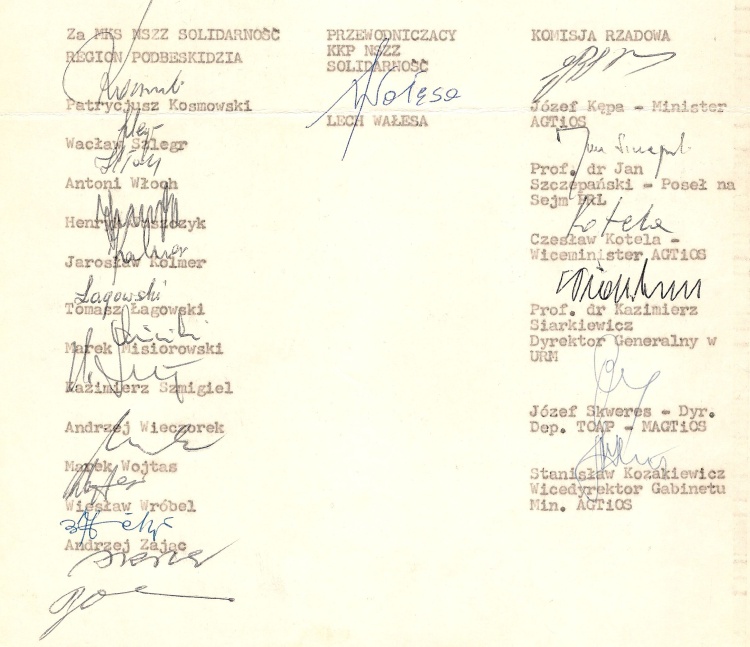 Za MKS NSZZ SOLIDARNOŚĆ
REGION PODBESKIDZIA
Patrycjusz Kosmowski
Wacław Szlegr
Antoni Włoch
Henryk Juszczyk
Jarosław Kolmer
Łagowski
Tomasz Łagowski
Marek Misiorowski
Kazimierz Szmigiel
Andrzej Wieczorek
Marek Wojtas
Wiesław Wróbel
Andrzej Zając
PRZEWODNICZACY
KKP NSZZ
SOLIDARNOŚĆ
Wałęsa
LECH WAŁESA
KOMISJA RZADOWA
Józef Kępa - Minister
AGTiOS
Prof. dr Jan
Szczepański - Poseł na
Sejm PRL
Kotela
Czesław Kotela -
Wiceminister AGTiOS
Prof. dr Kazimierz
Siarkiewicz
Dyrektor Generalny w
URM
Józef Skweres - Dyr.
Dep. TOAP - MAGTiOS
Stanisław Kozakiewicz
Wicedyrektor Gabinetu
Min. AGTiOS